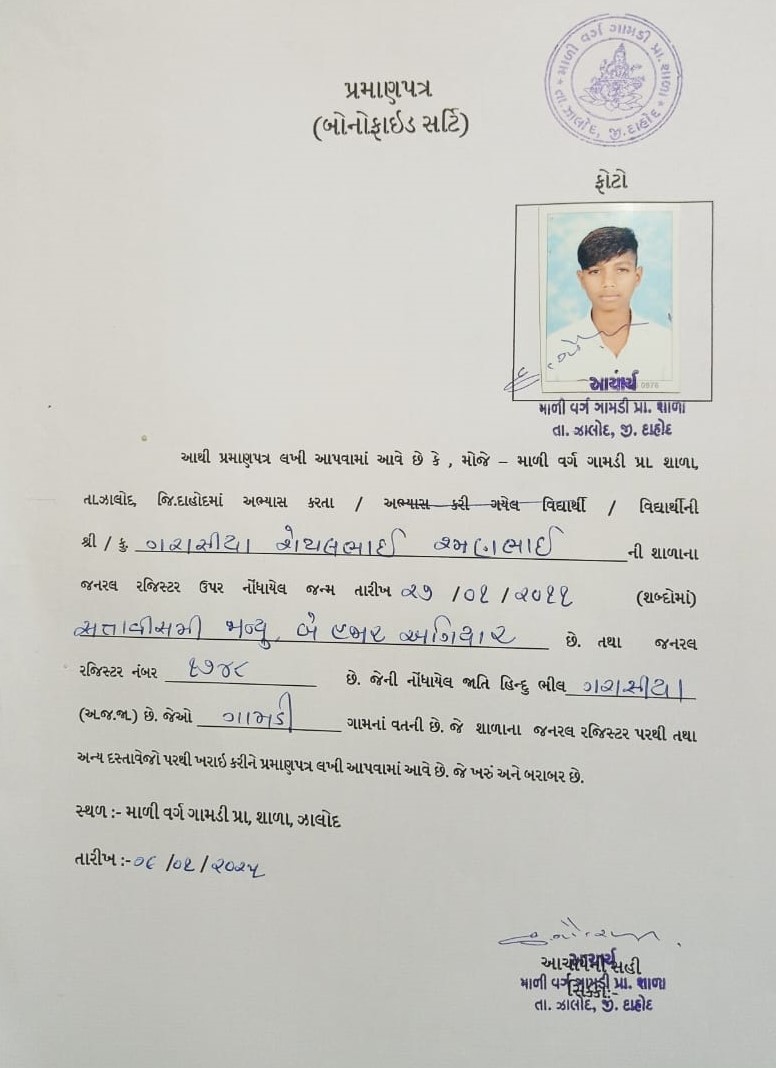 માળી વર્ગ ગામડી પ્રા. શાળા
તા. ઝાલોદ, જી. દાહોદ
પ્રમાણપત્ર
(બોનોફાઇડ સર્ટિ)
ફોટો
આચાર્ય
માળી વર્ગ ગામડી પ્રા. શાળા
તા. ઝાલોદ, જી. દાહોદ
આથી પ્રમાણપત્ર લખી આપવામાં આવે છે કે , મોજે – માળી વર્ગ ગામડી પ્રા. શાળા,
તા.ઝાલોદ, જિ.દાહોદમાં અભ્યાસ કરતા / અભ્યાસ કરી ગયેલ વિદ્યાર્થી / વિદ્યાર્થીની
શ્રી / કુ. ગરાસીયા રમણભાઈ ની શાળાના
જનરલ રજિસ્ટર ઉપર નોંધાયેલ જન્મ તારીખ ૨૭ /૦૧ / ૨૦૧૧ (શબ્દોમાં)
સત્તાવીસમી જાન્યુ, બે હજાર અગિયાર છે. તથા જનરલ
રજિસ્ટર નંબર ૧૭૪૮ છે. જેની નોંધાયેલ જાતિ હિન્દુ ભીલ ગરાસીયા
(અ.જ.જા.) છે. જેઓ ગામડી ગામનાં વતની છે. જે શાળાના જનરલ રજિસ્ટર પરથી તથા
અન્ય દસ્તાવેજો પરથી ખરાઇ કરીને પ્રમાણપત્ર લખી આપવામાં આવે છે. જે ખરું અને બરાબર છે.
સ્થળ :- માળી વર્ગ ગામડી પ્રા, શાળા, ઝાલોદ
તારીખ :- ૦૯ /૦૧ / ૨૦૨૫
આચાર્યની સહી
આચાર્ય
માળી વર્ગ ગામડી પ્રા. શાળા
સિક્કો:-
તા. ઝાલોદ, જી. દાહોદ